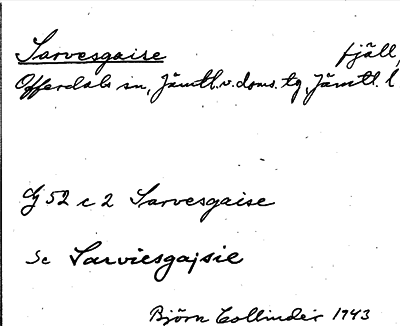 Sarvesgaise fjäll,
Offerdals sn, Jämtl. v. doms. tg, Jämtl. l
Gj 52 c 2 Sarvesgaise
Se Sarviesgajsie
Björn Collinder 1943